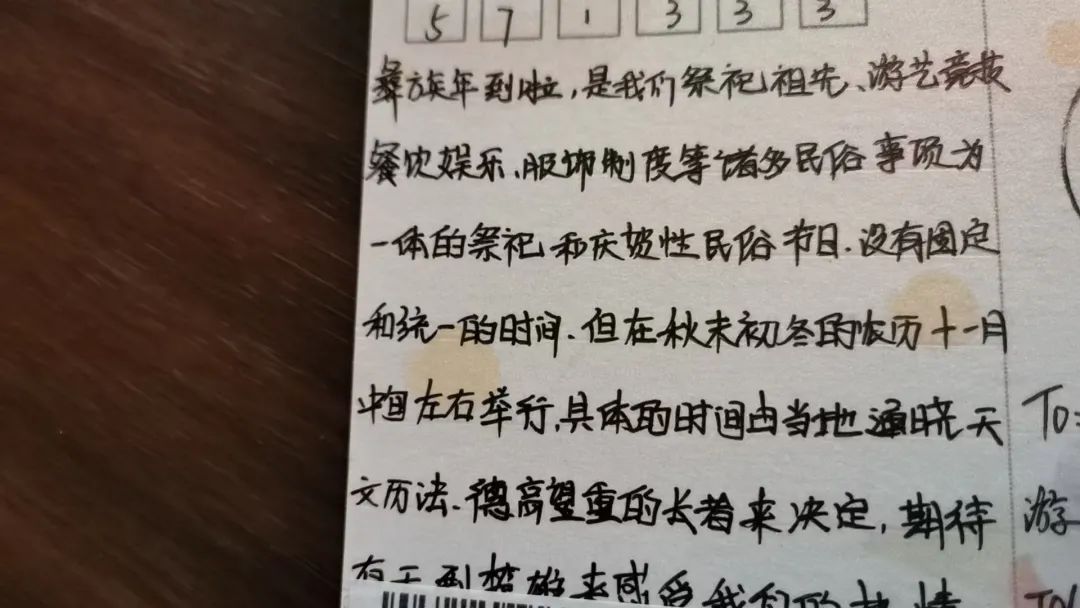 571333
彝族年到啦,是我们祭祀祖先、游艺竞技
餐饮娱乐、服饰制度等诸多民俗事项为
一体的祭祀和庆贺性民俗节日.没有固定
和统一的时间.但在秋末初冬的农历十一月
中间左右举行,具体的时间由当地通晓天
文历法.德高望重的长者来决定,期待
来感受我们的热情
To:
游
To